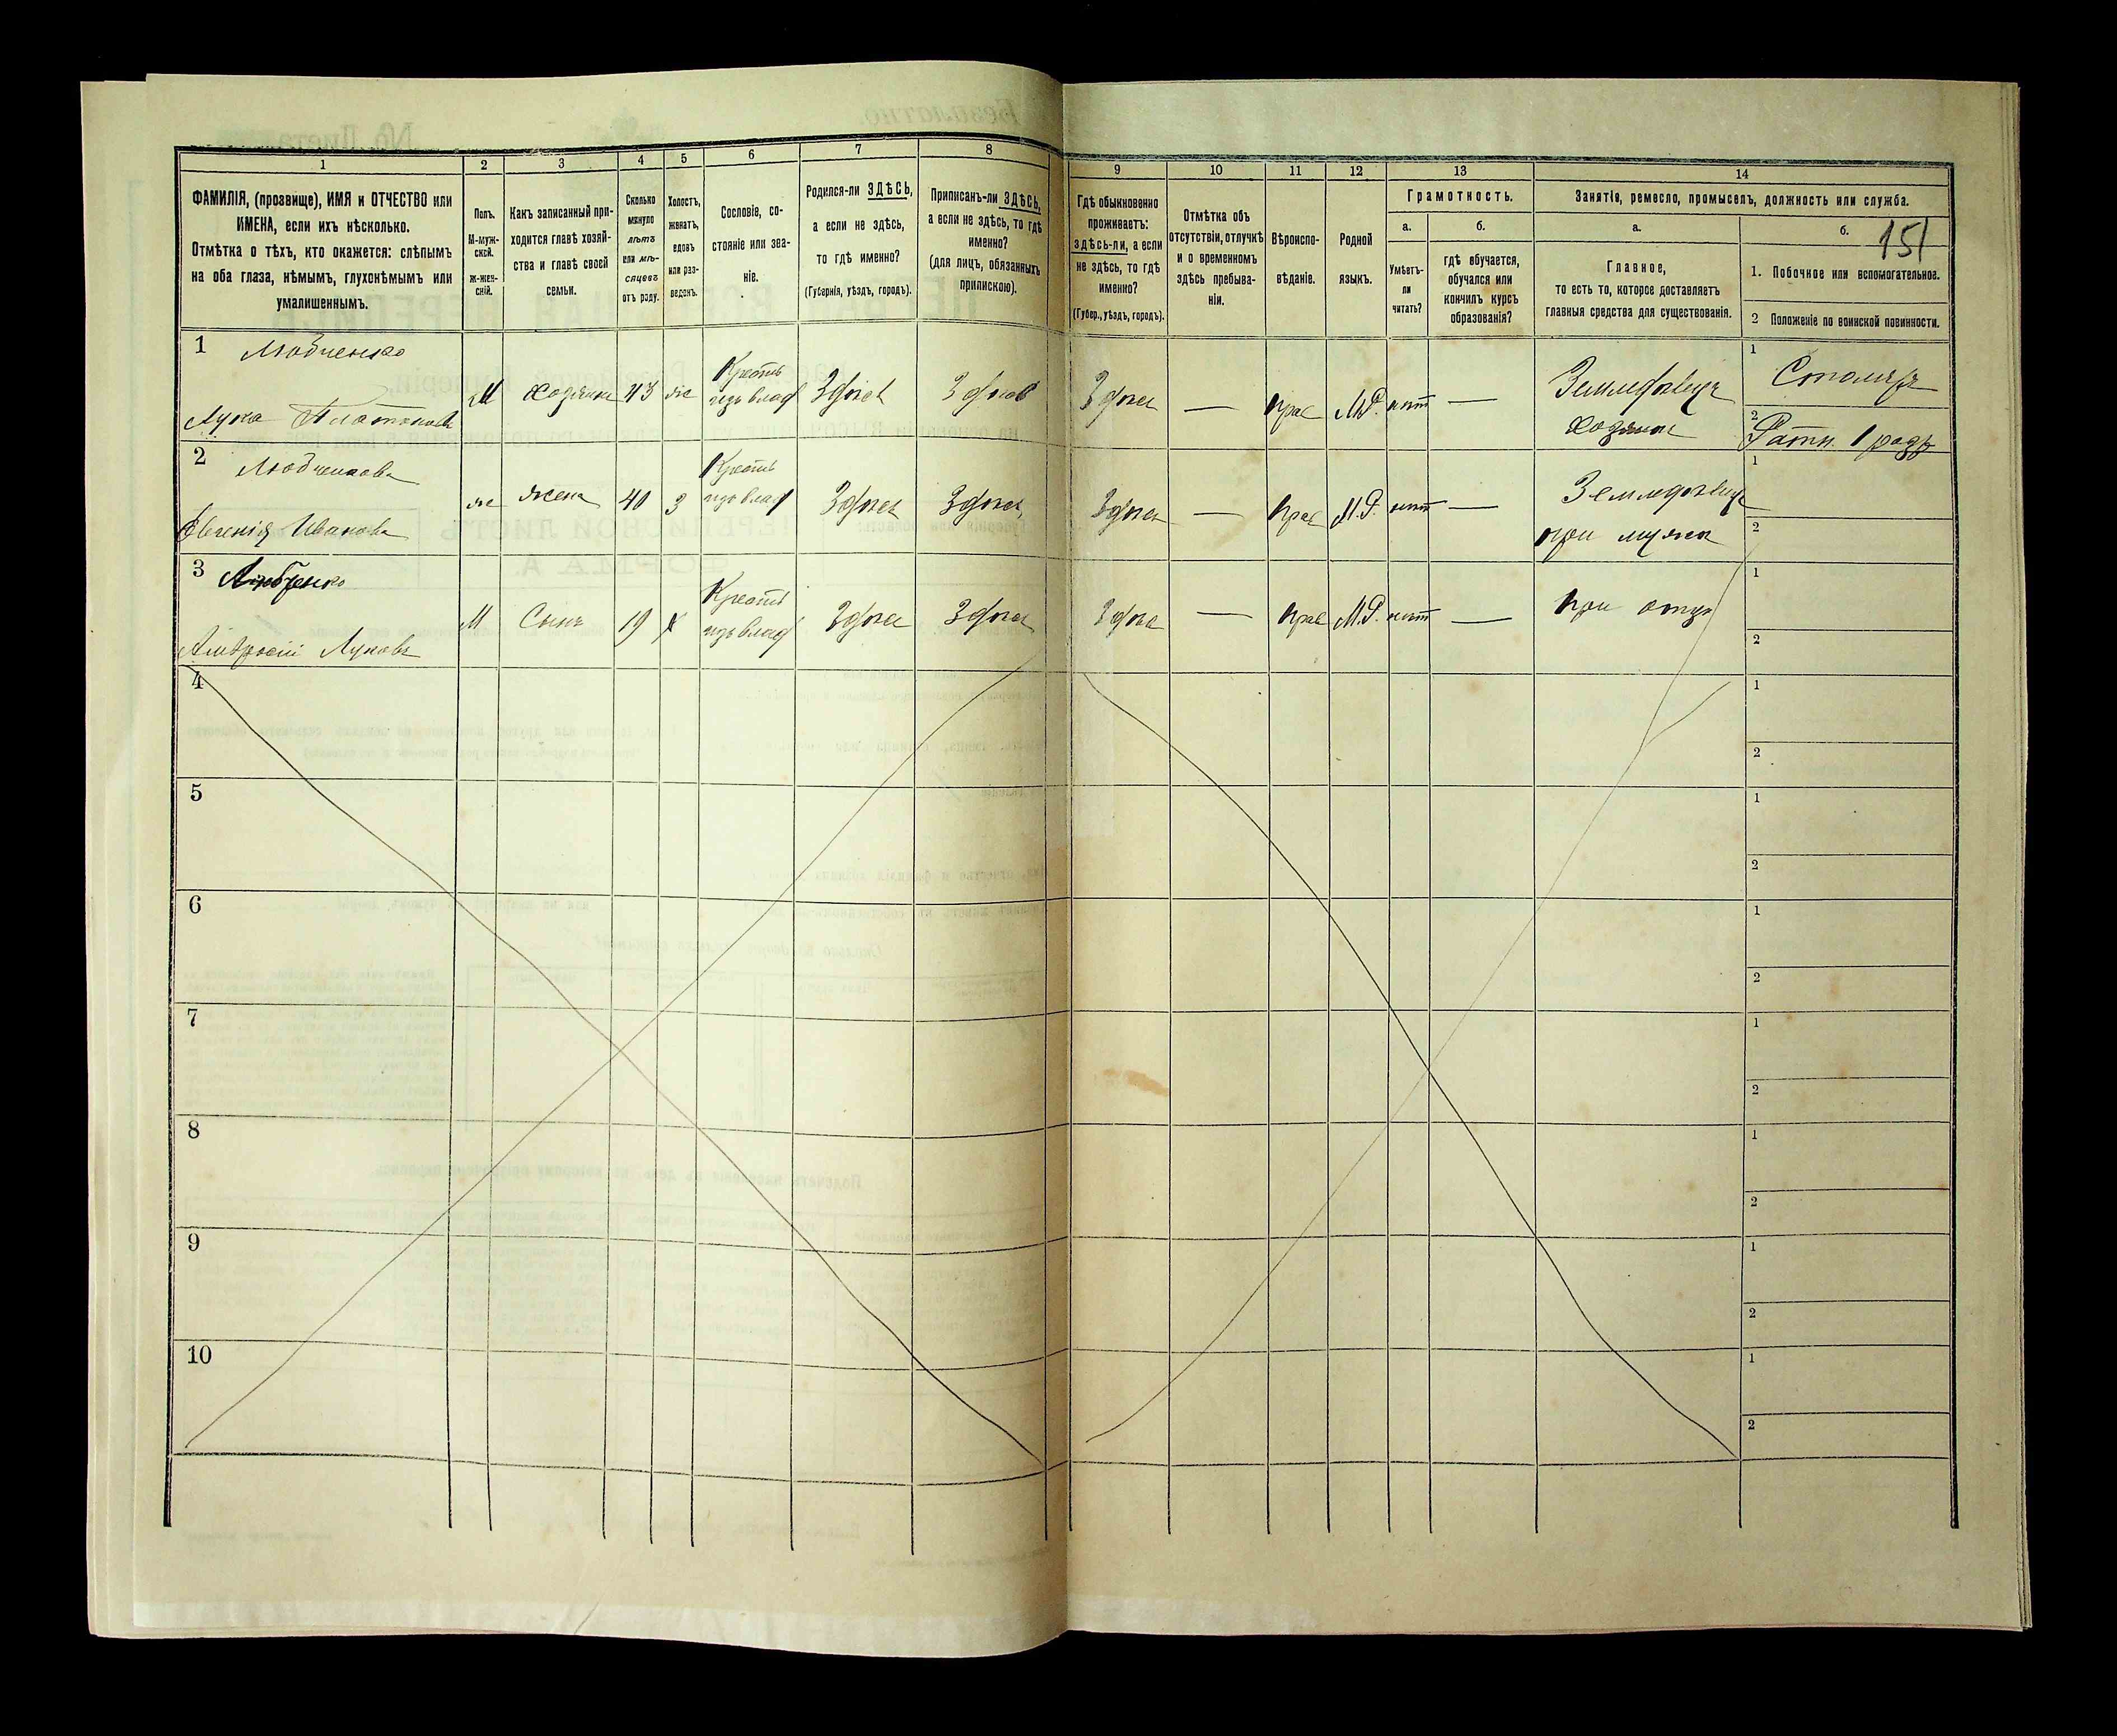 1 2 3 4 5 6 7 8
ФАМИЛІЯ, (прозвище), ИМЯ и ОТЧЕСТВО или
ИМЕНА, если ихъ нѣсколько.
Отмѣтка о тѣхъ, кто окажется: слѣпымъ
на оба глаза, нѣмымъ, глухонѣмымъ или
умалишеннымъ.
Полъ.
М-муж-
ской.
ж-жен-
скій.
Какъ записанный при-
ходится главѣ хозяй-
ства и главѣ своей
семьи.
Сколько
минуло
лѣтъ
или мѣ-
сяцевъ
отъ роду.
Холостъ,
женатъ,
вдовъ
или раз-
веденъ.
Сословіе, со-
стояніе или зва-
ніе.
Родился-ли ЗДѢСЬ,
а если не здѣсь,
то гдѣ именно?
(Губернія, уѣздъ, городъ).
Приписанъ-ли ЗДѢСЬ,
а если не здѣсь, то гдѣ
именно?
(для лицъ, обязанныхъ
припискою).
9 10 11 12 13 14
Гдѣ обыкновенно
проживаетъ:
здѣсь-ли, а если
не здѣсь, то гдѣ
именно?
(Губер., уѣздъ, городъ).
Отмѣтка объ
отсутствіи, отлучкѣ
и о временномъ
здѣсь пребыва-
ніи.
Вѣроиспо-
вѣданіе.
Родной
языкъ.
Грамотность.
а.
Умѣетъ-
ли
читать?
б.
гдѣ обучается,
обучался или
кончилъ курсъ
образованія?
Занятіе, ремесло, промыселъ, должность или служба.
а.
Главное,
то есть то, которое доставляетъ
главныя средства для существованія.
б.
151
1. Побочное или вспомогательное.
2 Положеніе по воинской повинности.
1 Любченко
Лука Платоновъ
М хозяинъ 43 ж
Крестъ
изъ влад
Здѣсь Здѣсь Здѣсь — Прав М.Р. нѣт —
Земледѣлецъ
хозяинъ
1 Столяръ
2 Ратн. 1 разр
2 Любченкова
Евгенія Иванова
ж жена 40 З
Крестъ
изъ влад
Здѣсь Здѣсь Здѣсь — Прав М.Р. нѣт —
при мужѣ
1
2
3 Любченко
Амвросій Луковъ
М Сынъ 19 х
Крестъ
изъ влад
Здѣсь Здѣсь Здѣсь — Прав М.Р. нѣт —
при отцѣ
1
2
4
1
2
5
1
2
6
1
2
7
1
2
8
1
2
9
1
2
10
1
2